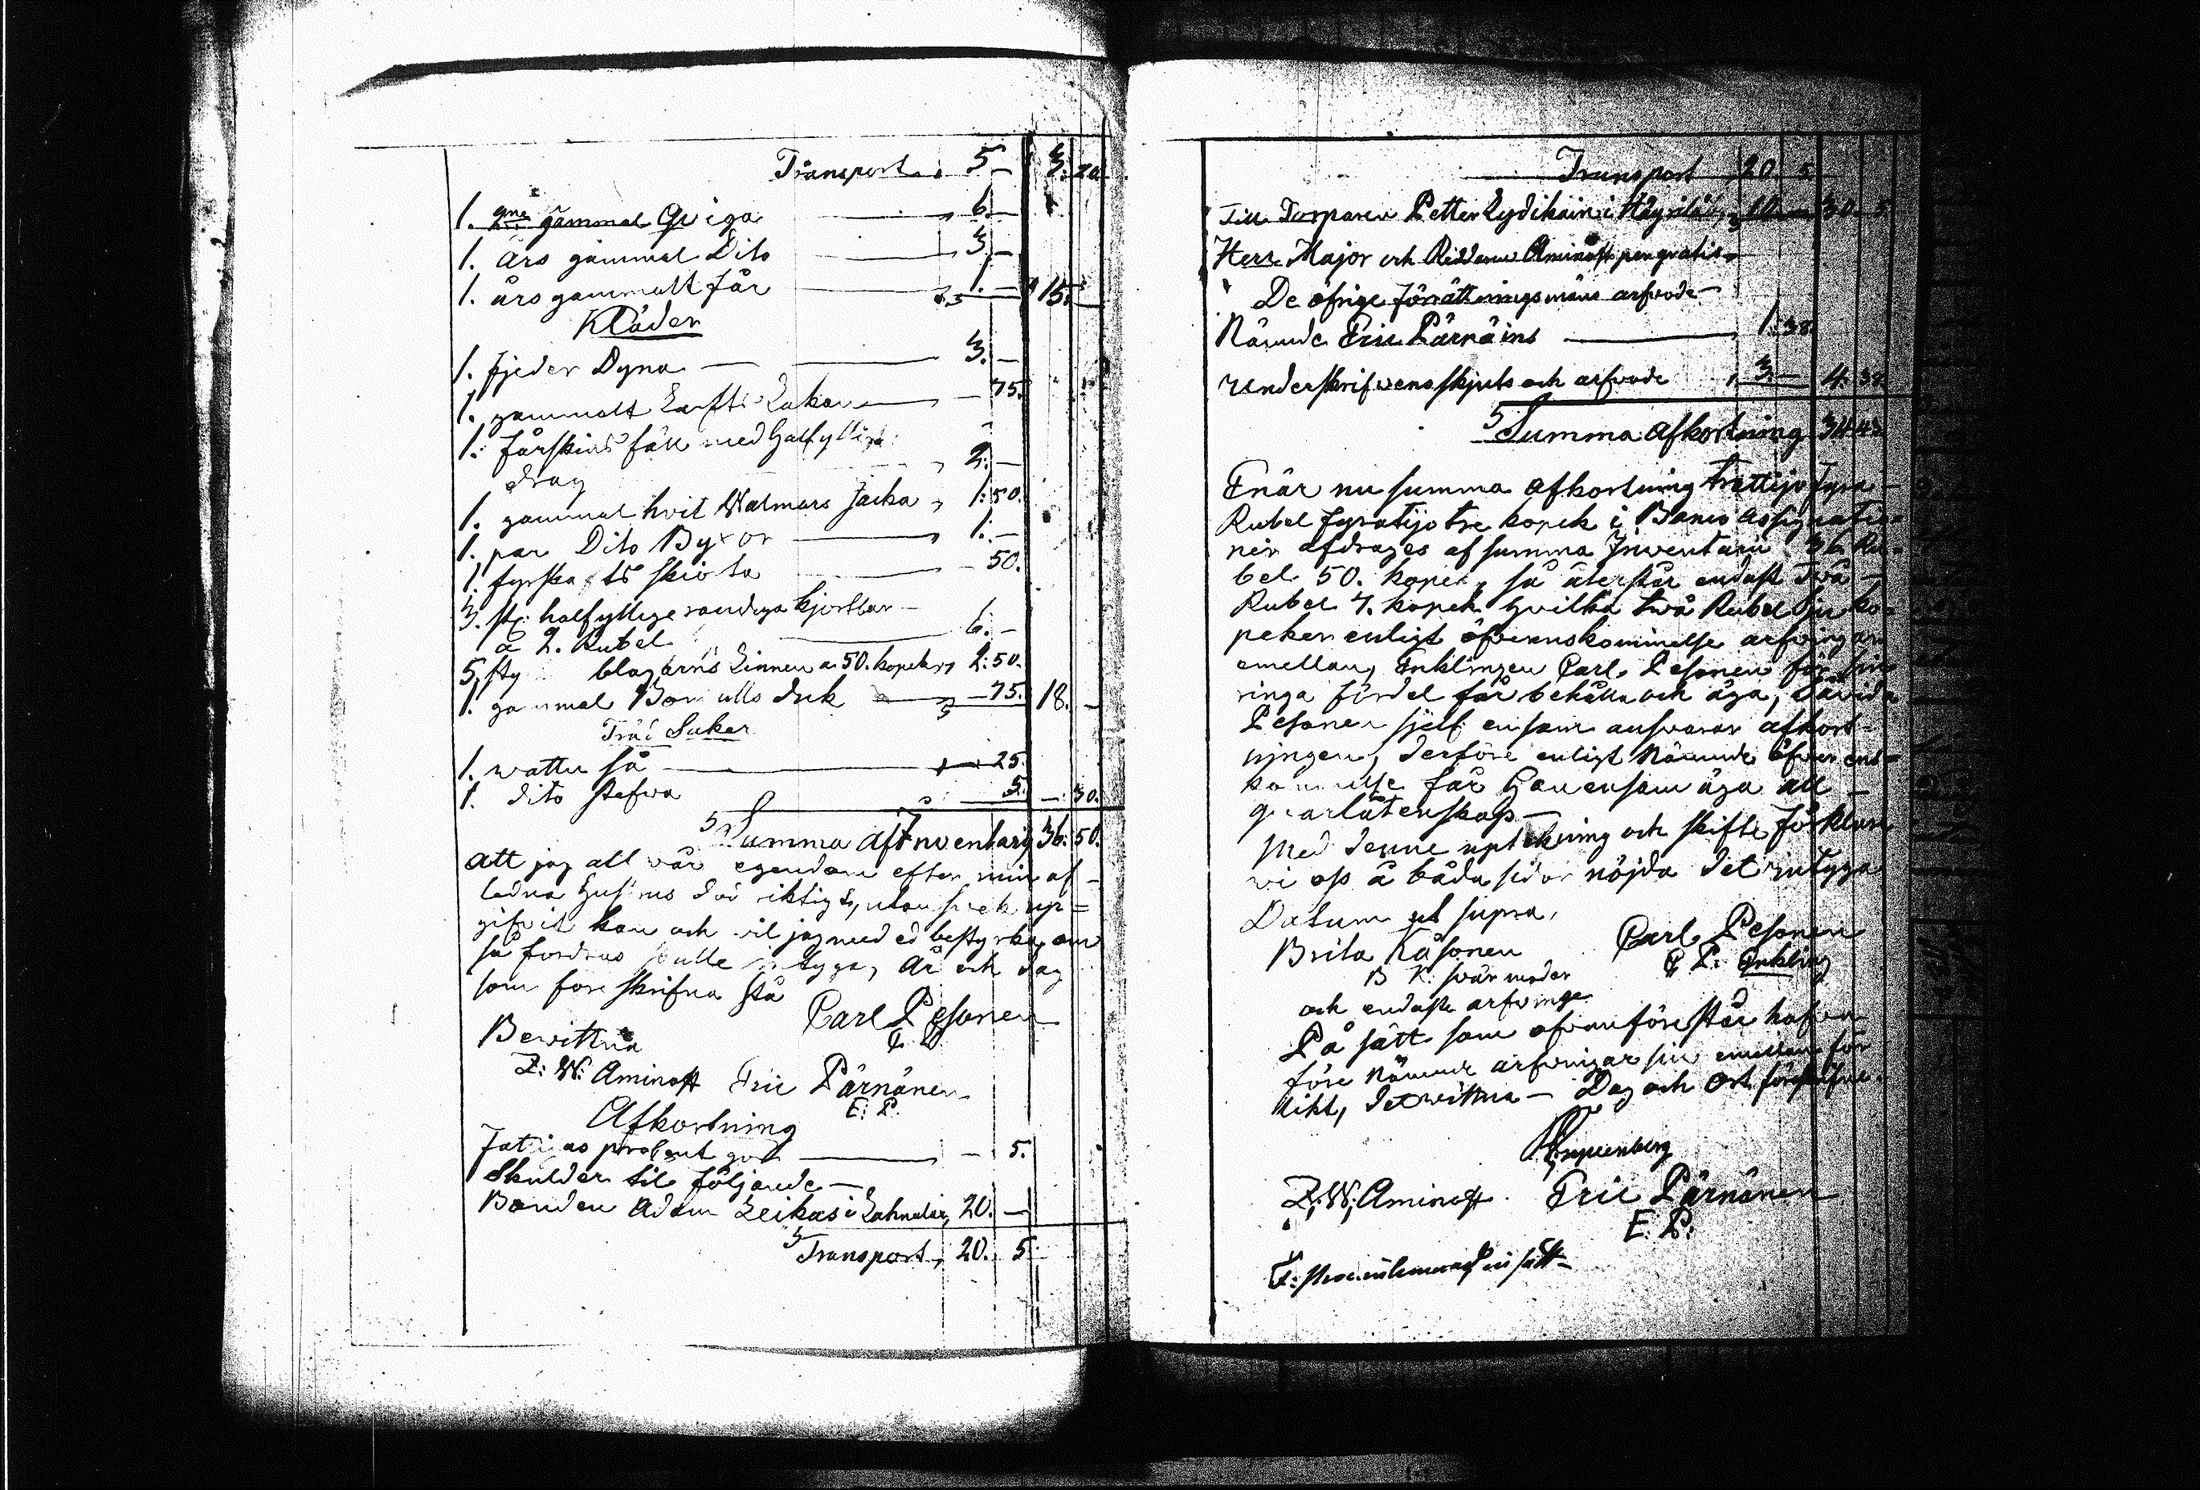 Transport 5 — 3: 20.
1. 2ne gammal Qviga 6. —
1. års gammal Dito 3. —
1. års gammalt får 1. — 15. —
Kläder
1. fjeder Dyna 3. —
1. gammalt Lärfts Lakan — 75.
1. fårskins fäll med halfyllist
drag 2. —
1. gammal hvit Walmars Jacka 1: 50.
1. par Dito Byxor 1. —
1. tyrska — 50.
3. st: halfyllige randiga kjortlar —
a 2. Rubel 6. —
5. sty blagarns Linnen a 50. kopek 2: 50.
1. gammal Bomulls duk — 75. 18. —
Träd Saker
1. watten så — 25.
1. dito stefwa 5. — 30.
Summa af Inventarii 36: 50.
att jag all vår egendom efter min af-
ledna hustrus död riktigt, utan svek up=
gifvit kan och vil jag med ed bestyrka, om
så fordras skulle intyga, År och dag
som föreskrifna stå
Carl Pesonen
Bewittna
Z: W: Aminoff Eric Pärnänen
E: P.
Afkortning
Fattigas procent 5.
Skulder til följande —
Bonden Adam Leikas i Lahnalax, 20. —
Transport, 20. 5.
Transport 20. 5
Till Torparen Petter Lydikain i 10 — 30. 5.
Herr Major och Riddaren Aminoff per gratis
De öfrige förrättningsmäns arfvode —
Nämnde Eric Pärnäins 1: 38.
Underskrifvens skjuts och arfvode 3. — 4. 38.
Summa afkortning 34. 43.
Enär nu summa afkortning trettijo fyra —
Rubel fyratijo tre kopek i Banco assignatio-
ner afdrages af summa Inventarii 36 Ru-
bel 50. kopek, så återstår endast Två —
Rubel 7. kopek hvilka två Rubel sju ko-
peker enligt öfverenskommelse arfvingar
emellan, Enklingen Carl Pesonen för sin
ringa fördel får behålla och äga,
Pesonen sjelf ensam answarar afkort-
ningen, derföre enligt nämnde öfverens-
kommelse får han ensam äga all —
qvarlåtenskap —
Med denne uptekning och skifte förklara
wi oss å båda sidor nöjda det intyga
Datum ut supra,
Brita Räsonen Carl Pesonen
B R: svärmoder C P: Enkling
och endaste arfvinge
På sätt som ofvanföre står hafva
före nämnde arfvingar sin emellan för
likt, det wittna — Dag och ort förskrifne.
Z: W: Aminoff. Eric Pärnänen
E. P.